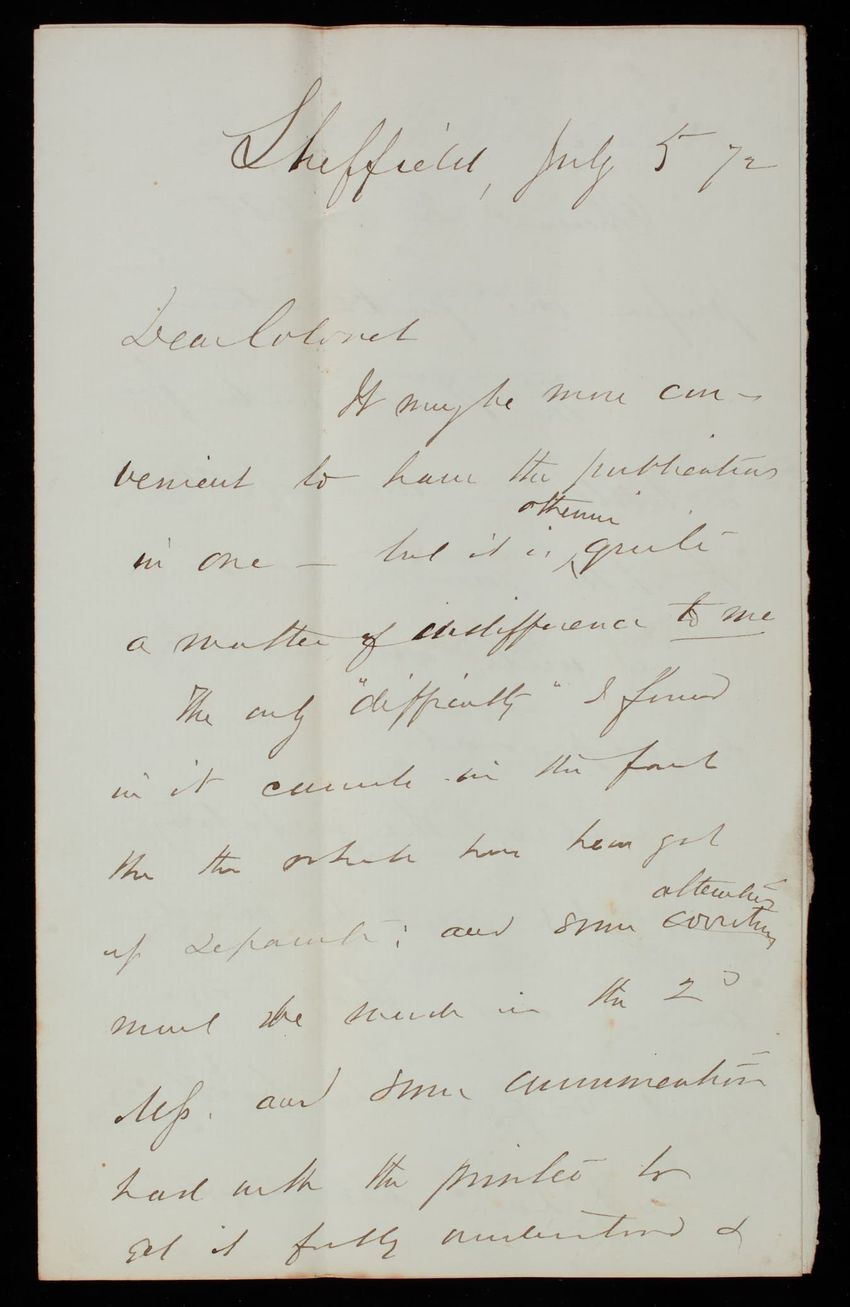 Sheffield, July 5 72
Dear Colonel
It may be more con-
venient to have the publications
otherwise
in one — but it is quite
a matter of indifference to me
The only "difficulty" I found
in it consists in the fact
the the whole have been got
alterations
up separate; and some
must be made in the 2d
Ms. and some communication
had with the printer to
get it fully understood &